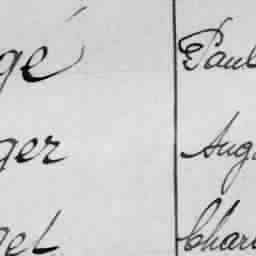 gé Paul
ger Aug
get Charl